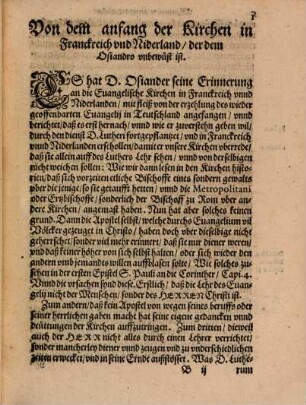 Von dem anfang der Kirchen in
Franckreich vnd Niderland / der dem
Osiandro vnbewüßt ist.
ES hat D. Osiander seine Erinnerung
an die Euangelische Kirchen in Franckreich vnnd
Niderlanden / mit fleiß von der erzehlung des wieder
geoffenbarten Euangelij in Teutschland angefangen / vnnd
berichtet / daß es erst hernach / vnnd wie er zuverstehn geben wil /
durch den dienst D. Lutheri fortgepflantzet / vnd in Franckreich
vnnd Niderlanden erschollen / damit er vnsere Kirchen vberrede /
daß sie allein auff des Luthers Lehr sehen / vnnd von derselbigen
nicht weichen sollen: Wie wir dann lesen in den Kirchen histo-
rien / daß sich vorzeiten etliche Bischoffe eines sondern gewalts
vber die jenige / so sie getaufft hetten / vnnd die Metropolitani
oder Ertzbischoffe / sonderlich der Bischoff zu Rom vber an-
dere Kirchen / angemaßt haben. Nun hat aber solches keinen
grund. Dann die Apostel selbst / welche durchs Euangelium viel
Völcker gezeuget in Christo / haben doch vber dieselbige nicht
geherrschet / sonder viel mehr erinnert / daß sie nur diener weren /
vnd daß keiner höher von sich selbst halten / oder sich wieder den
andern vmb jemandes willen auffblasen solte / Wie solches zu-
sehen in der ersten Epistel S. Pauli an die Corinther / Capi. 4.
Vnnd die vrsachen sind diese. Erstlich / daß die Lehr des Euan-
gelij nicht der Menschen / sonder des HERREN Christi ist.
Zum andern / daß kein Apostel von wegen seines beruffs oder
seiner herrlichen gaben macht hat seine eigene gedancken vnnd
deuttungen der Kirchen auffzutringen. Zum dritten / dieweil
auch der HERR nicht alles durch einen Lehrer verrichtet /
sonder mancherley diener vnnd zeugen vnd zu vnderschiedlichen
zeiten erwecket / vnd in seine Ernde außstösset. Was D. Luthe-
B ij
rum